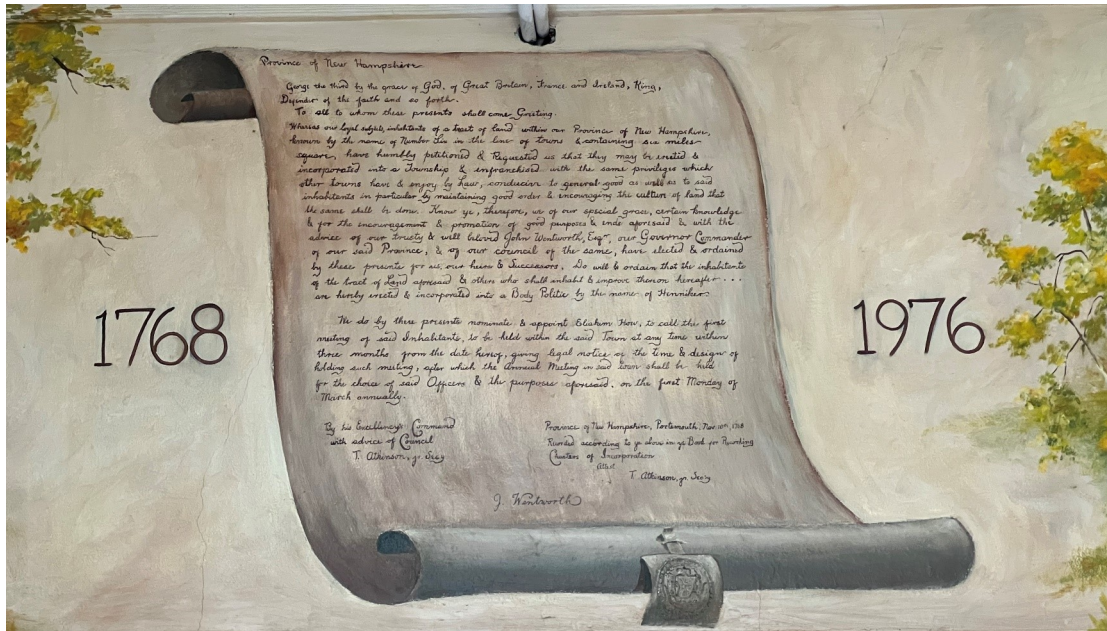 Province of New Hampshire
George the third by the grace of God, of Great Britain, France and Ireland, King,
Defender of the faith and so forth.
To all to whom these presents shall come Greeting.
Whereas our loyal subjects, inhabitants of a tract of land within our Province of New Hampshire,
known by the name of Number Six in the line of towns & containing six miles
square, have humbly petitioned & Requested us that they may be erected &
incorporated into a Township & infranchised with the same privileges which
other towns have & enjoy by Law, conducive to general good as well as to said
inhabitants in particular by maintaining good order & encouraging the culture of land that
the same shall be done. Know ye, therefore, we of our special grace, certain knowledge
& for the encouragement & promotion of good purposes & ends aforesaid & with the
advice of our trusty & well beloved John Wentworth, Esqr, our Governor Commander
of our said Province, & of our council of the same, have elected & ordained
by these presents for us, our heirs & Successors, Do will & ordain that the inhabitants
of the tract of Land aforesaid & others who shall inhabit & improve theron hereafter . . .
are hereby erected & incorporated into a Body Politic by the name of Henniker.
We do by these presents nominate & appoint Eliakim How, to call the first
meeting of said Inhabitants, to be held within the said Town at any time within
three months from the date hereof, giving legal notice of the time & design of
holding such meeting, after which the Annual Meeting in said town shall be held
for the choice of said Officers & the purposes aforesaid, on the first Monday of
March annually.
1768
1976
By his Excellency's Command
with advice of Council
T. Atkinson, jr. Secy
Province of New Hampshire, Portsmouth, Nov. 10th, 1768
Recorded according to ye above in ye Book for Recording
Charters of Incorporation
Attest
T. Atkinson, jr. Secy
J. Wentworth